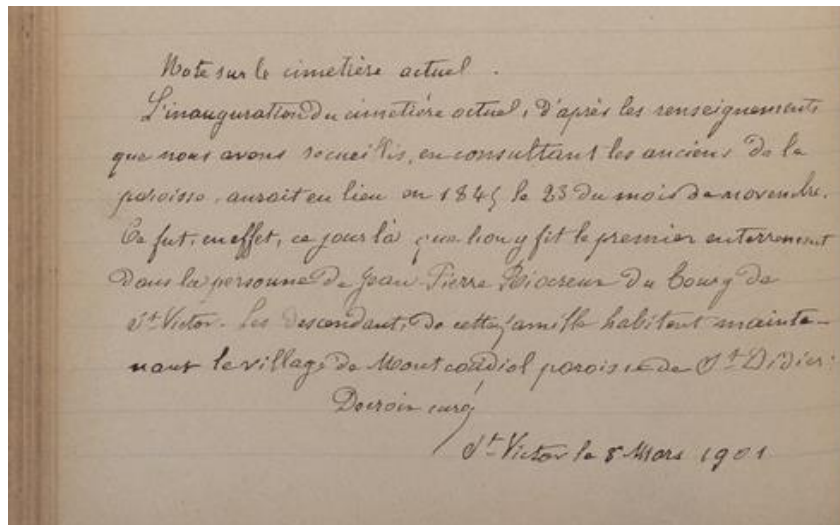 Note sur le cimetière actuel.
L'inauguration du cimetière actuel, d'après les renseignements
que nous avons recueillis, en consultant les anciens de la
paroisse, aurait eu lieu en 1845 le 23 du mois de novembre.
Ce fut, en effet, ce jour là que l'on y fit le premier enterrement
dans la personne de Jean-Pierre Riocreux du bourg de
St Victor. Les descendants de cette famille habitent mainte-
nant le village de paroisse de St Didier.
curé
St Victor le 8 Mars 1901